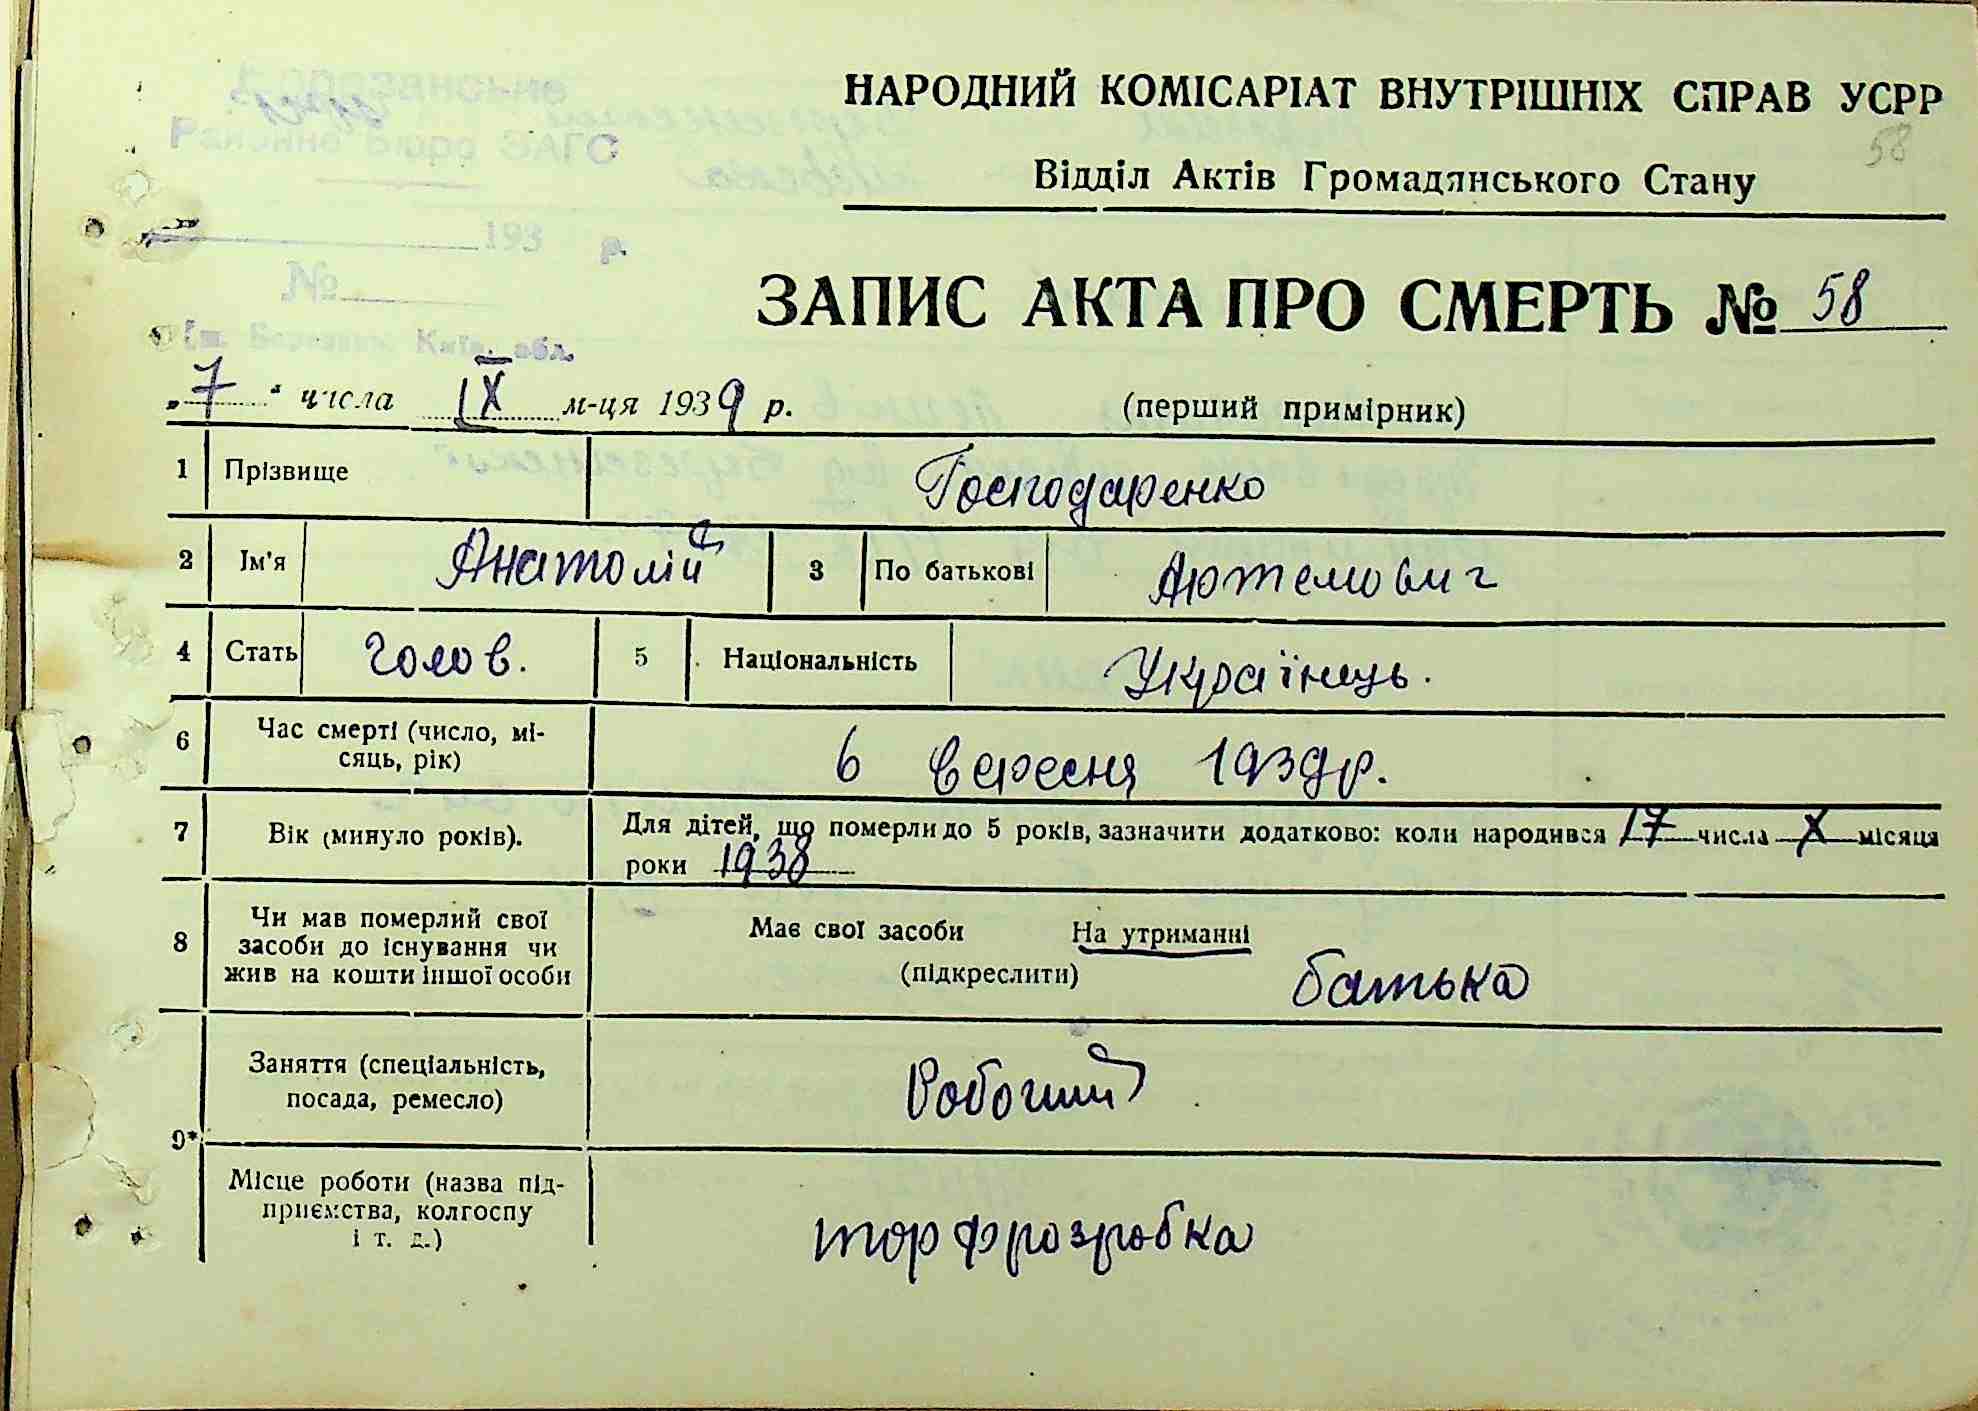 НАРОДНИЙ КОМІСАРІАТ ВНУТРІШНІХ СПРАВ УСРР
58
Відділ Актів Громадянського Стану
Районне Бюро ЗАГС
193 р.
№
ЗАПИС АКТА ПРО СМЕРТЬ № 58
Київ. обл.
„7“ числа IX м-ця 1939 р. (перший примірник)
1 Прізвище Господаренко
2 Ім'я Анатолій 3 По батькові Артемович
4 Стать чолов. 5 Національність Українець.
6 Час смерті (число, мі-
сяць, рік) 6 вересня 1939р.
7 Вік (минуло років). Для дітей, що померли до 5 років, зазначити додатково: коли народився 17 числа X місяця
роки 1938
8 Чи мав померлий свої
засоби до існування чи
жив на кошти іншої особи
Має свої засоби На утриманні
(підкреслити) батька
9* Заняття (спеціальність,
посада, ремесло) Робочий
Місце роботи (назва під-
приємства, колгоспу
і т. д.) торфрозробка